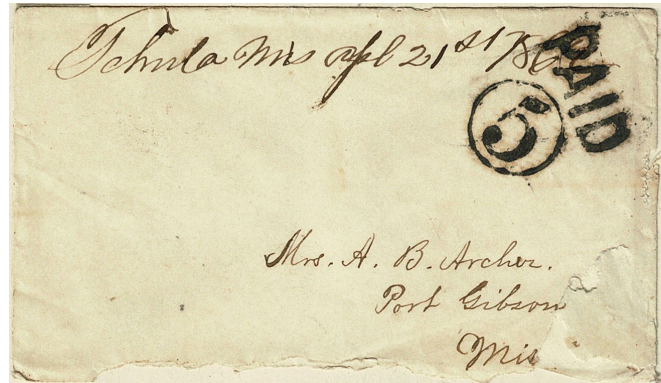 Tchula Mis Apl 21st /86
PAID
5
Mrs. A. B. Archer.
Port Gibson
Mis